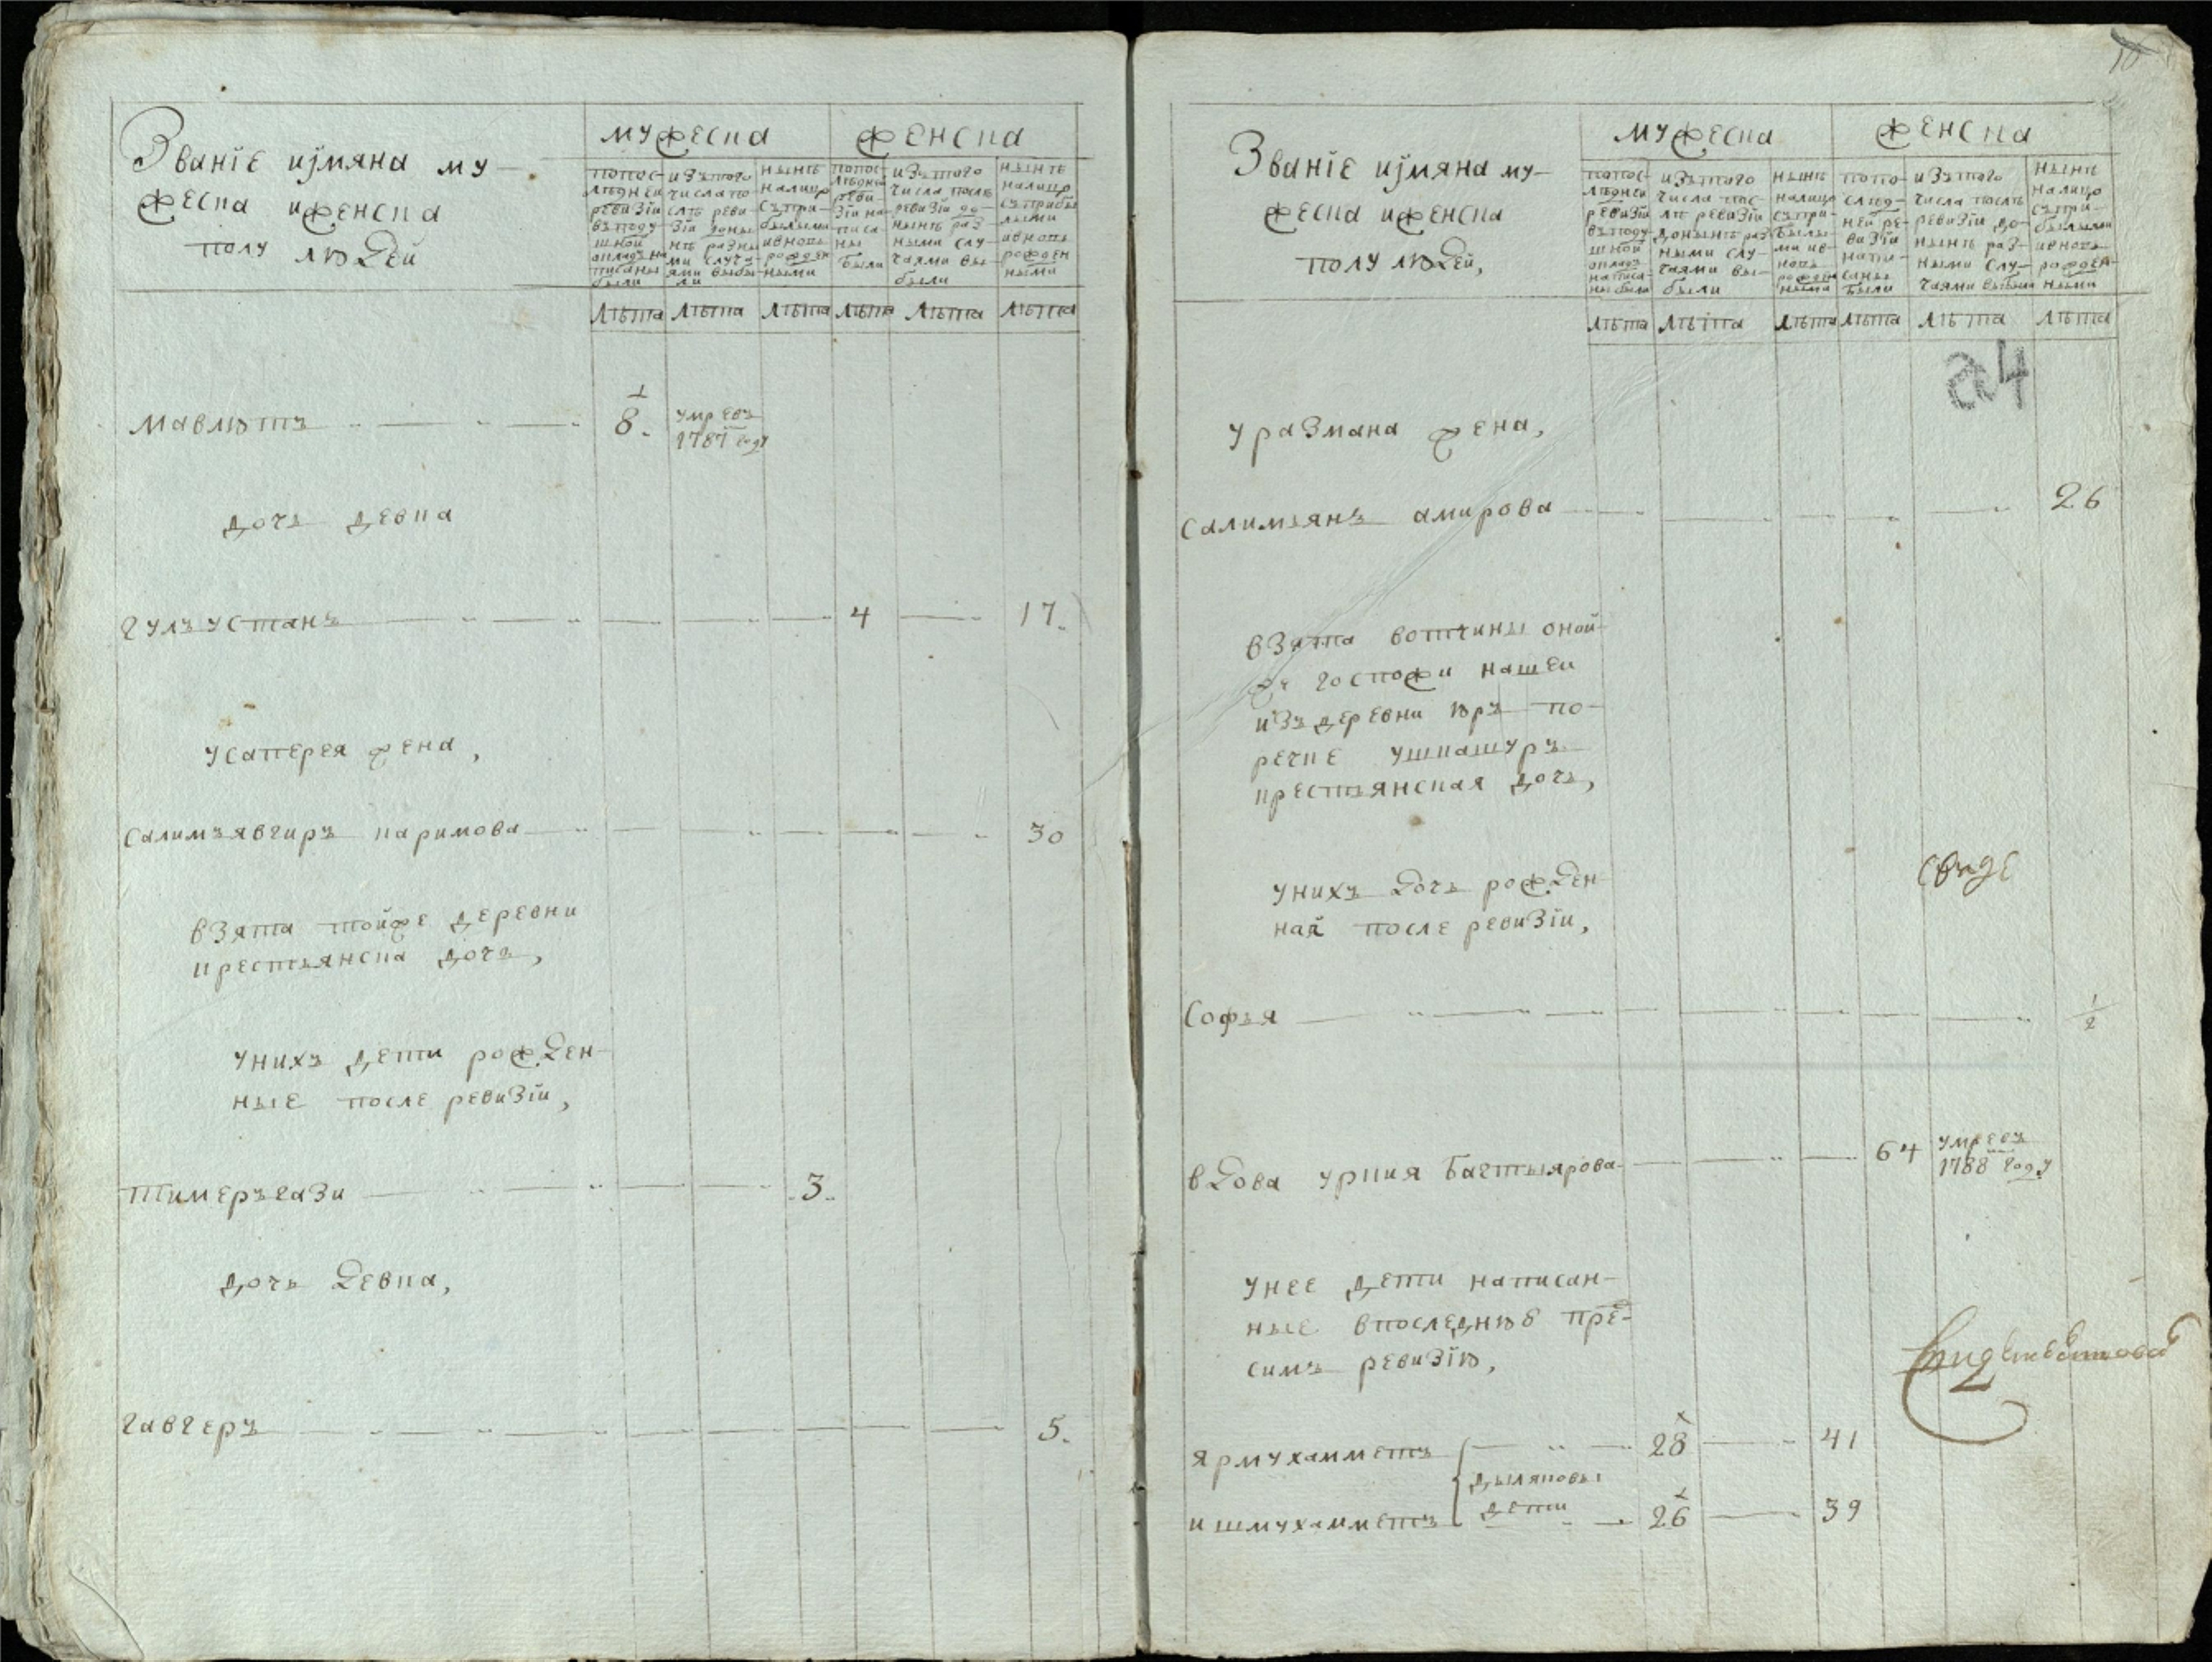 Званїе иімяна му-
жеска иженска
полу людей
мужеска
женска
попос-
лѣднеи
ревизїи
въподу
шной
окладъ на
писаны
были
изътого
числа по-
слѣ реви-
зїи доны
нѣ разны
ми случа-
ями выбы
ли
нынѣ
налицо
съпри-
былыми
ивновь
рожден
ными
попос-
лѣдней
реви-
зїи на-
писа
ны
были
изътого
числа послѣ
ревизїи до-
нынѣ раз-
ными слу-
чаями вы-
были
нынѣ
налицо
съприбы
лыми
ивновь
рожден
ными
лѣта лѣта лѣта лѣта лѣта лѣта
мавлютъ 8. умре въ
1787 году
дочь девка
гулъустанъ 4 17.
усаперея жена,
салимъявгиръ каримова 30
взята тойже деревни
крестьянска дочь,
унихъ дети рожден-
ные после ревизїи,
тимеръгази 3.
дочь девка,
гавгеръ 5.
Званїе иімяна му-
жеска иженска
полу людей,
мужеска
женска
попос-
лѣднеи
ревизїи
въподу
шной
окладъ
написа-
ны были
изътого
числа пос-
лѣ ревизїи
донынѣ раз
ными слу-
чаями вы-
были
нынѣ
налицо
съпри-
былы-
ми ив-
новь
рожден
ными
попо-
слѣд-
ней ре-
визїи
напи-
саны
были
изътого
числа послѣ
ревизїи до-
нынѣ раз-
ными слу-
чаями выбыли
нынѣ
налицо
съпри-
былыми
ивновь
рожден-
ными
лѣта лѣта лѣта лѣта лѣта лѣта
уразмана жена,
салимьянъ амирова 26
взята вотчины оной-
же госпожи нашеи
изъдеревни юръ по-
речке ушкашуръ
крестьянская дочь,
унихъ дочь рожден
ная после ревизїи,
софья 1/2
вдова уркия багтыярова 64 умре въ
1788 году
унее дети написан-
ные впоследнюю пре-
симъ ревизїю,
ярмухамметъ 28 41
дыляковы
дети
ишмухамметъ 26 39